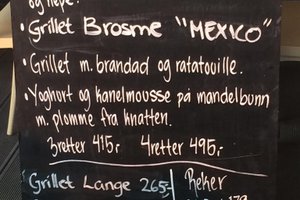 og nepe.
• Grillet Brosme "MEXICO"
• Grillet m. brandad og ratatouille.
• Yoghurt og kanelmousse på mandelbunn
m. plomme fra knatten.
3retter 415,- 4retter 495,-
Grillet Lange 265,- Reker